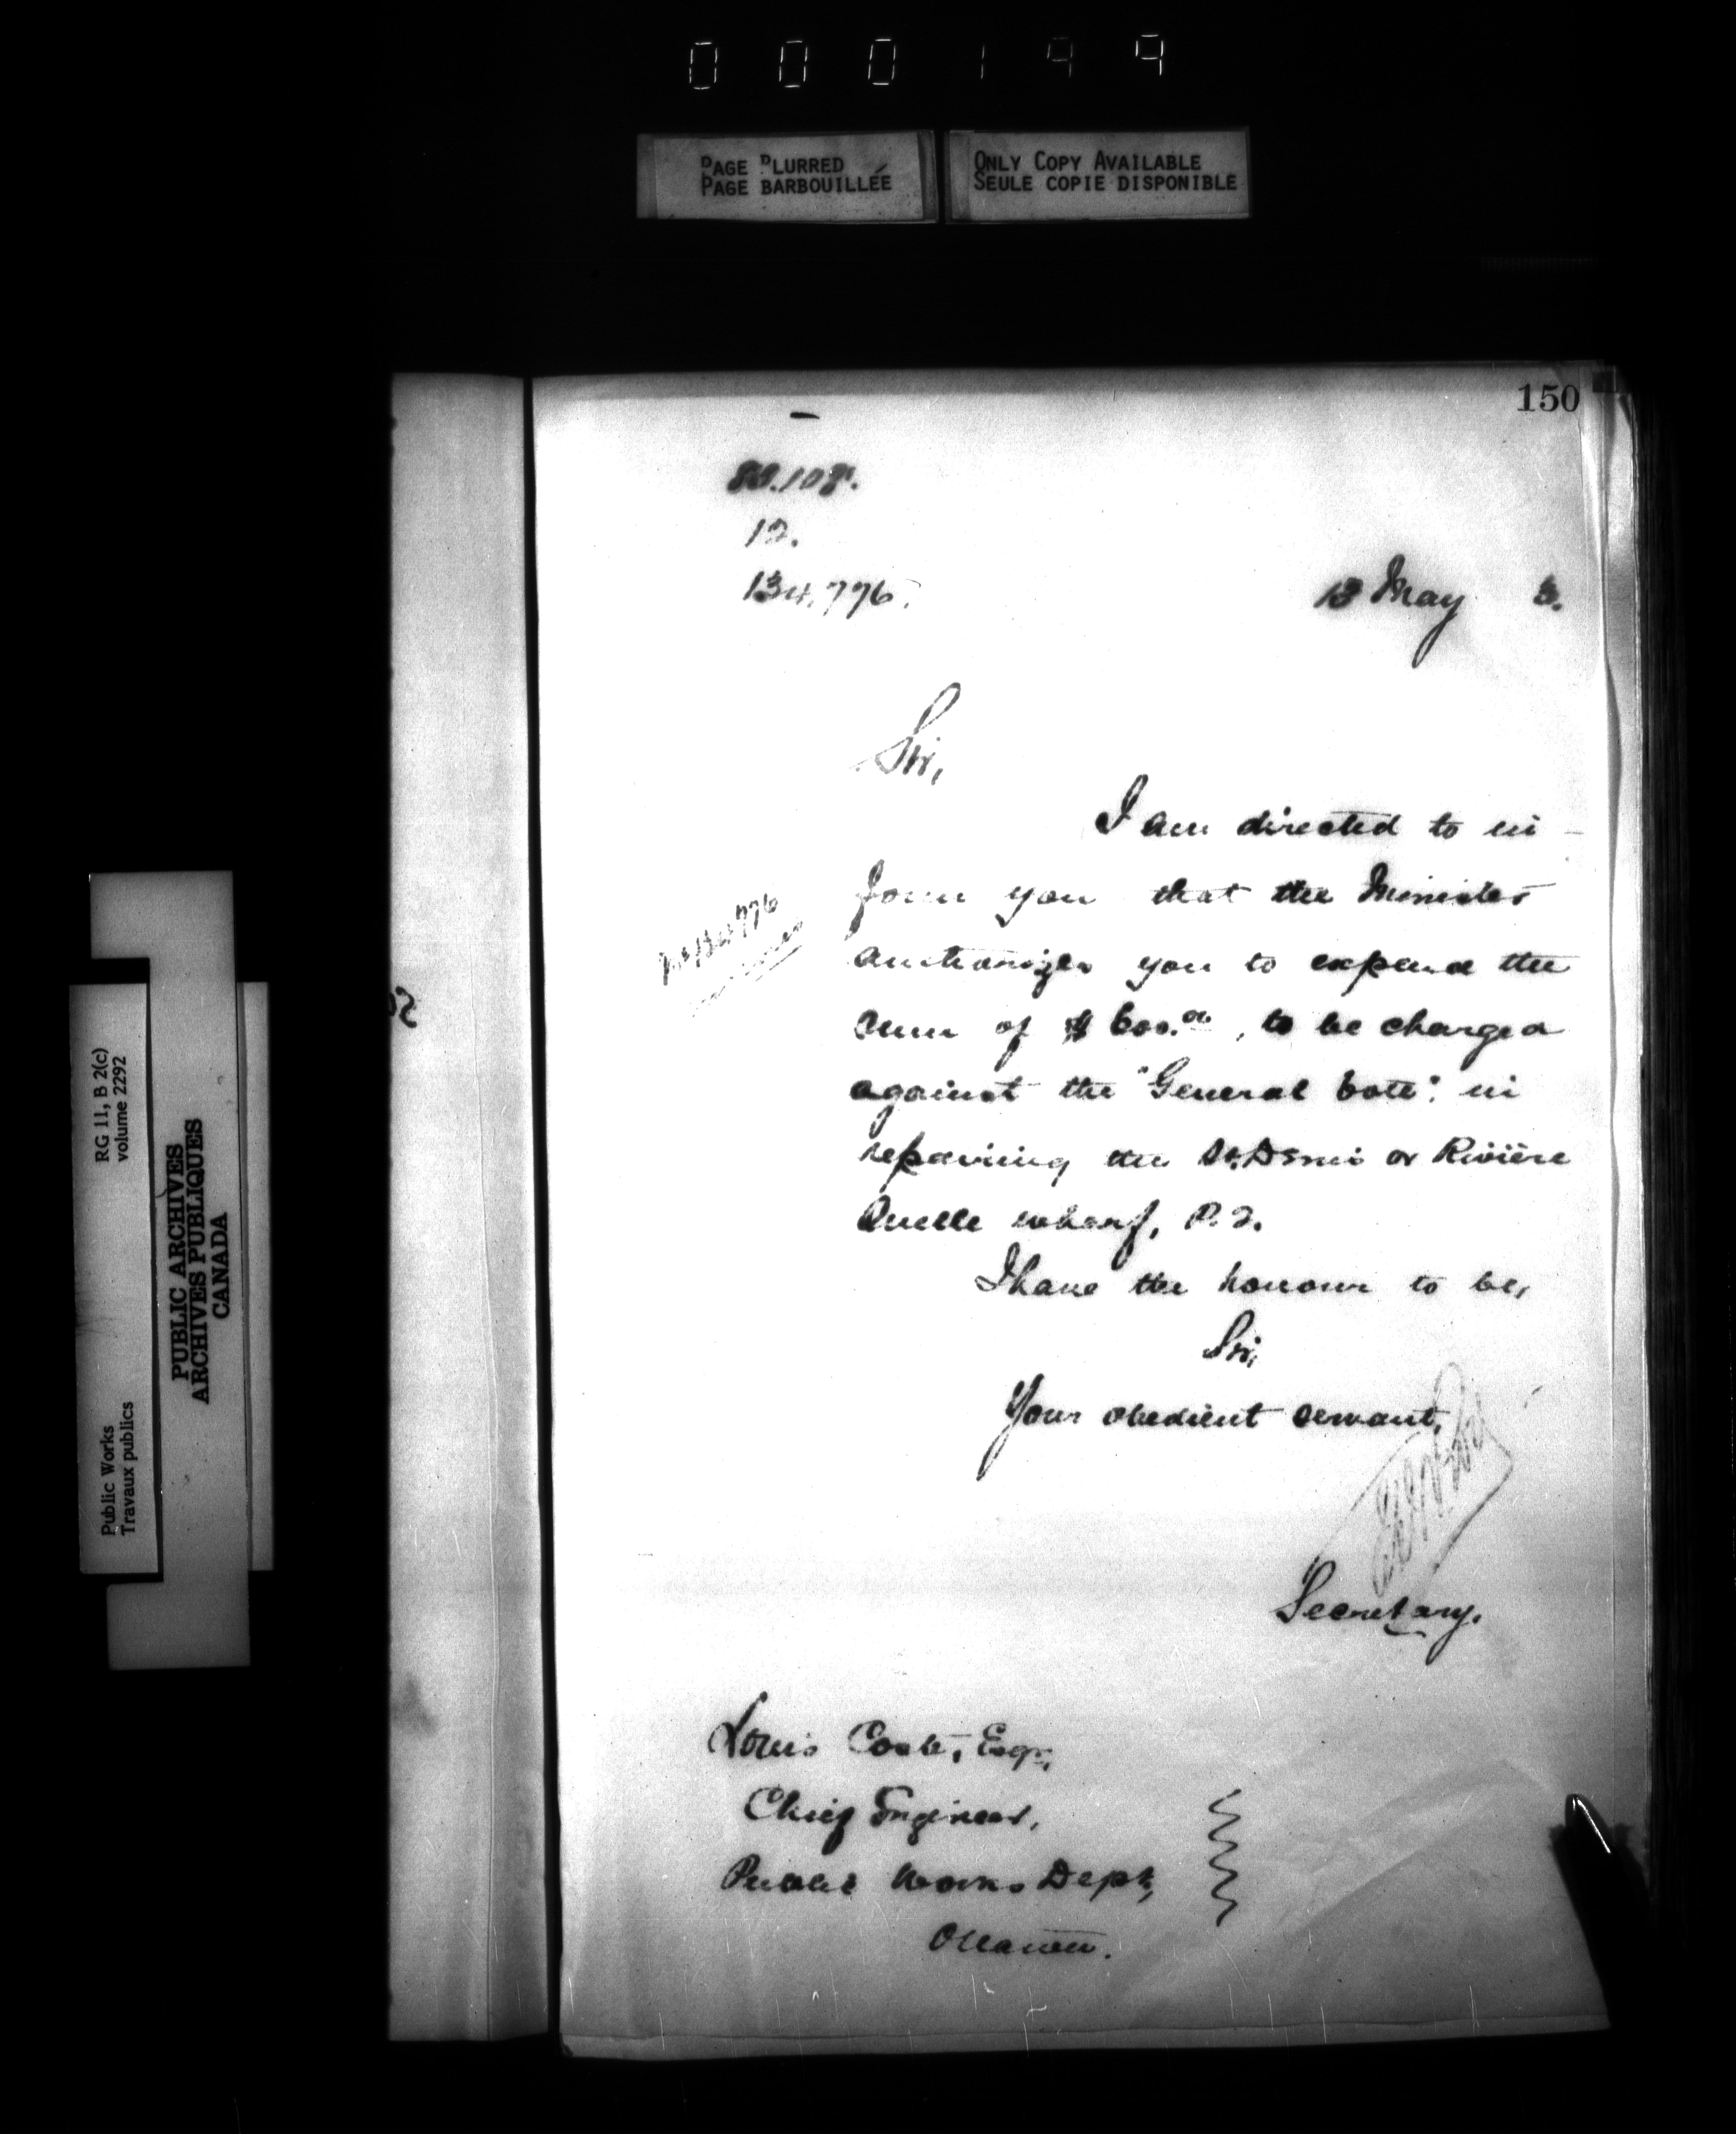 000149
PAGE BLURRED
PAGE BARBOUILLÉE
ONLY COPY AVAILABLE
SEULE COPIE DISPONIBLE
150
12.
134,776.
13 May 3.
Sir,
I am directed to in-
form you that the Minister
authorizes you to expend the
sum of $600.00, to be charged
against the "General Vote" in
repairing the St. Denis or Rivière
Ouelle wharf, P.Q.
I have the honour to be,
Sir,
Your obedient servant,
Secretary.
No 134776
Louis Coste, Esqr,
Chief Engineer,
Public Works Dept,
Ottawa.
RG 11, B 2(c)
volume 2292
Public Works
Travaux publics
PUBLIC ARCHIVES
ARCHIVES PUBLIQUES
CANADA